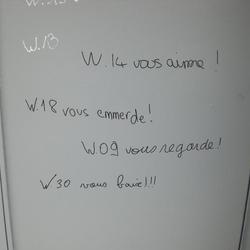 W.13
W.14 vous aime !
W.18 vous emmerde !
W.09 vous regarde !
W.30 vous baise !!!